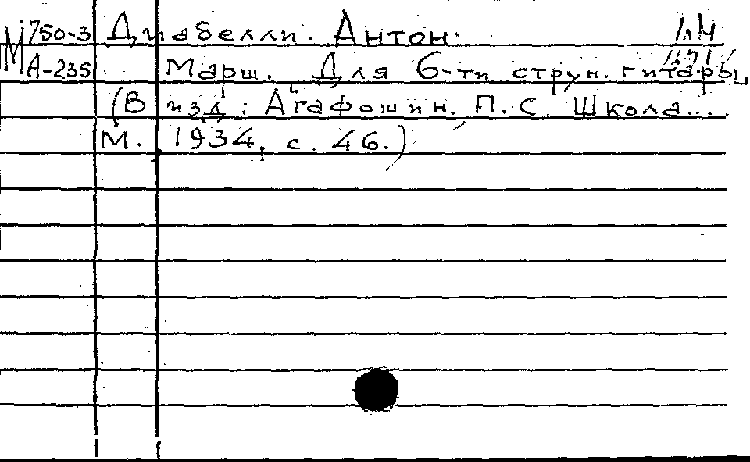 М 750-3 Диабелли. Антон.
А-235 Марш. Для 6-ти струн. гитары
(В изд.: Агафошин. П. С. Школа...
М., 1934, с. 46.)